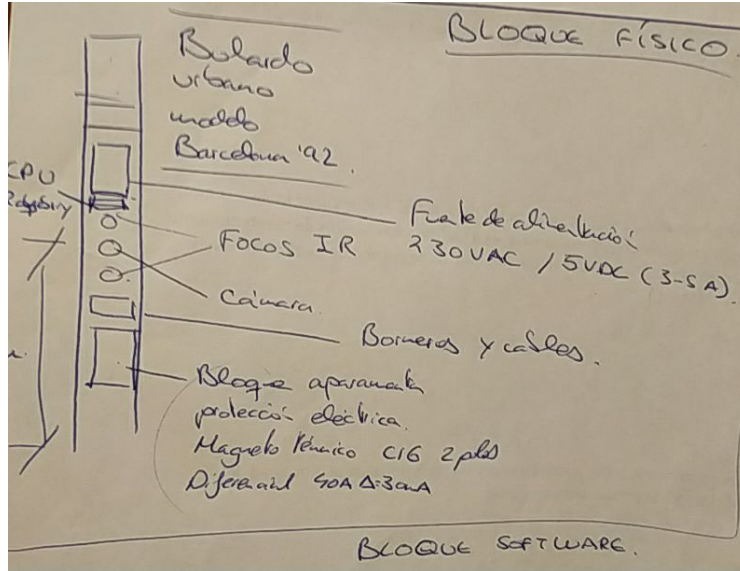 BLOQUE FÍSICO.
Bolardo
urbano
modelo
Barcelona '92.
CPU
Raspberry
Fuente de alimentación
230VAC / 5VDC (3-5A).
FOCOS IR
Cámara.
Borneros y cables.
Bloque aparamenta
protección eléctrica.
Magneto térmico C16 2 polos
Diferencial 40A Δ=30mA
BLOQUE SOFTWARE.